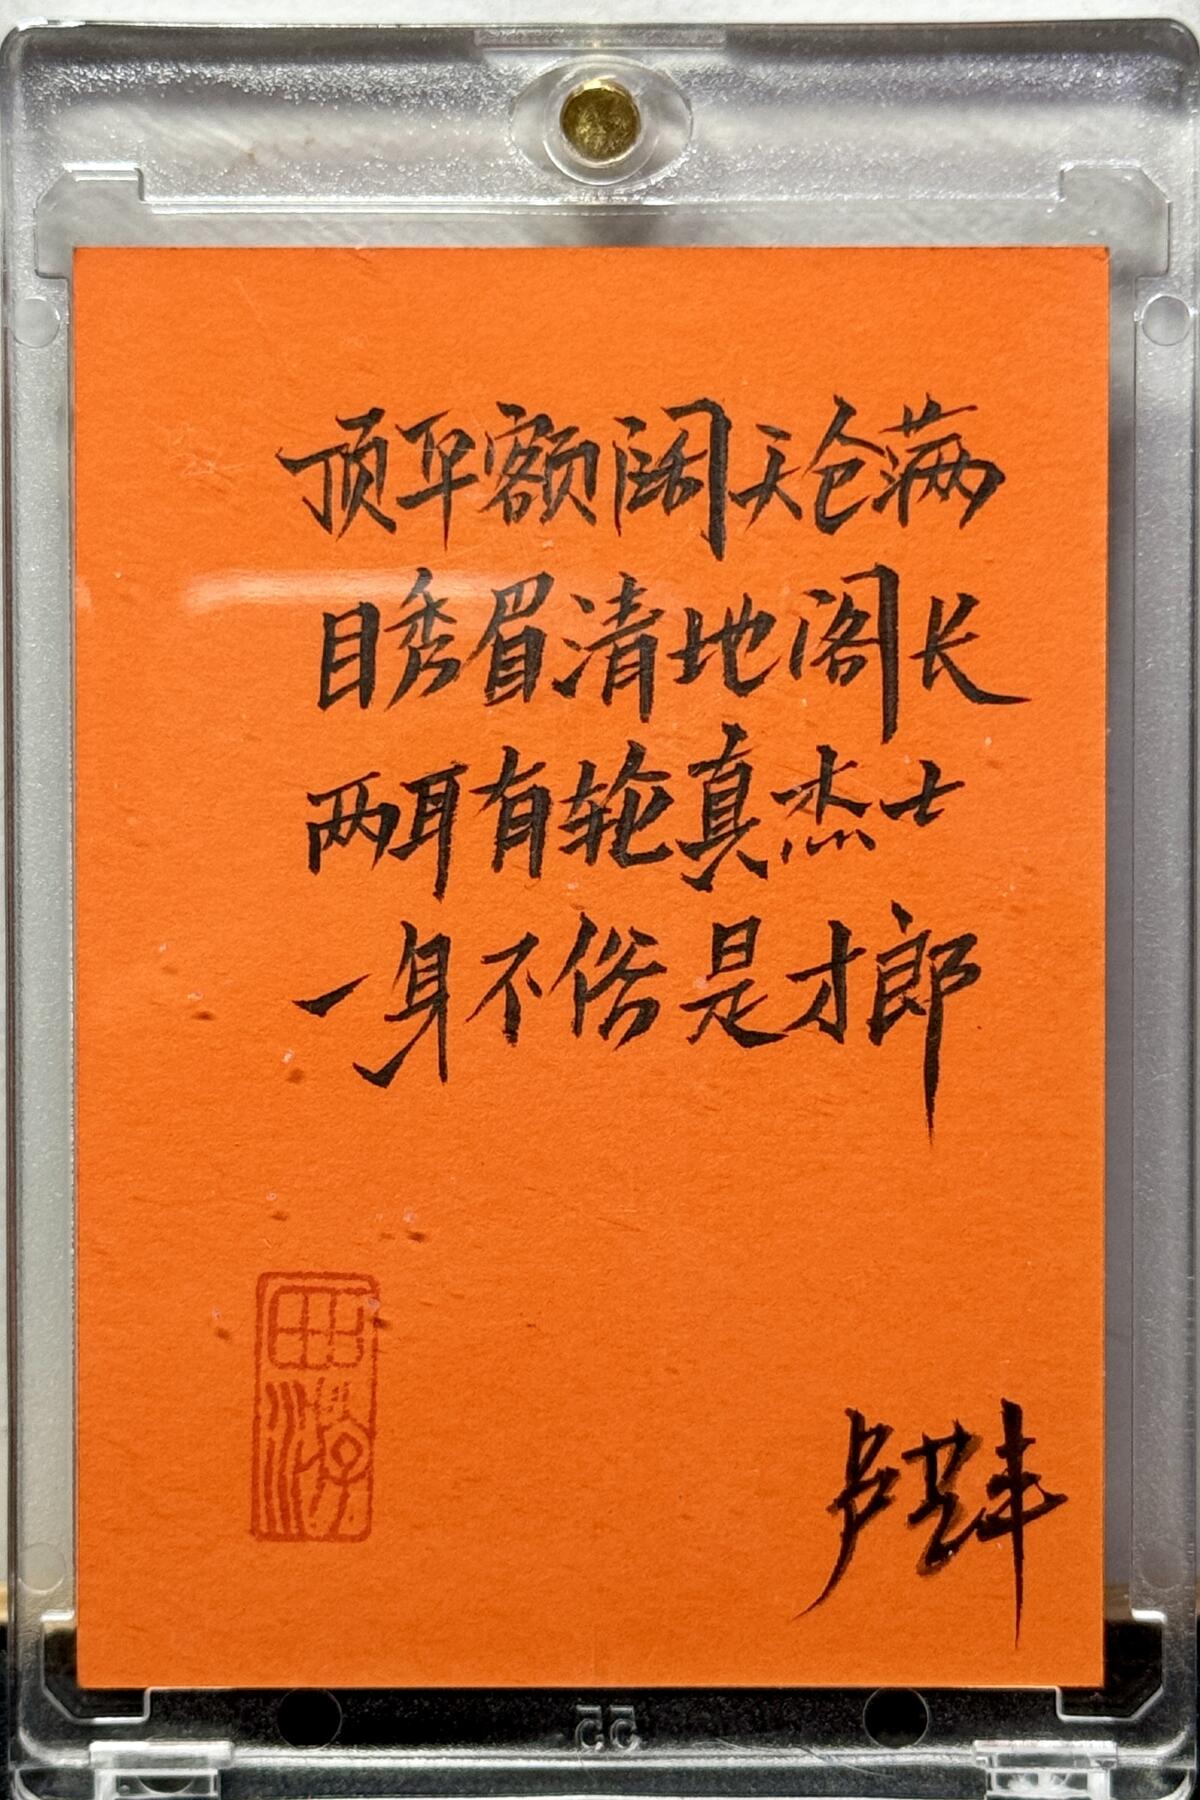 顶平额阔天仓满
目秀眉清地阁长
两耳有轮真杰士
一身不俗是才郎
西游
卢世丰
55